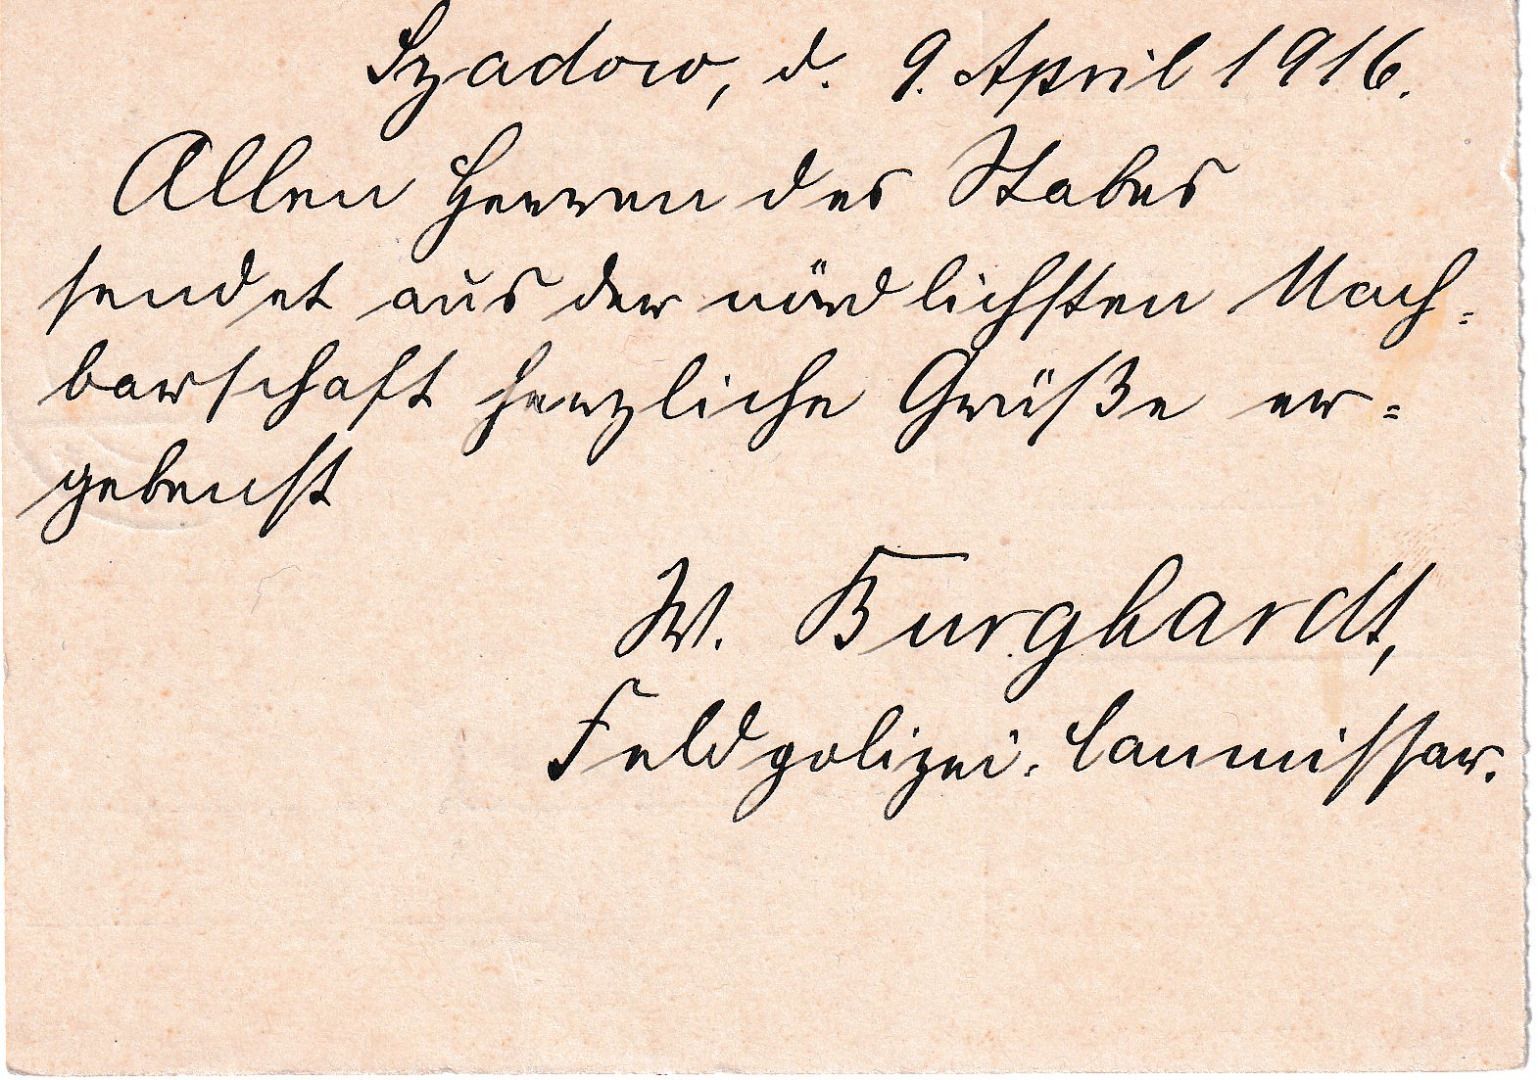 Szadow, d. 9. April 1916.
Allen Herren des Stabes
sendet aus der nördlichsten Nach=
barschaft herzliche Grüße er=
gebenst
W. Burghardt,
Feldpolizei. Commissar.